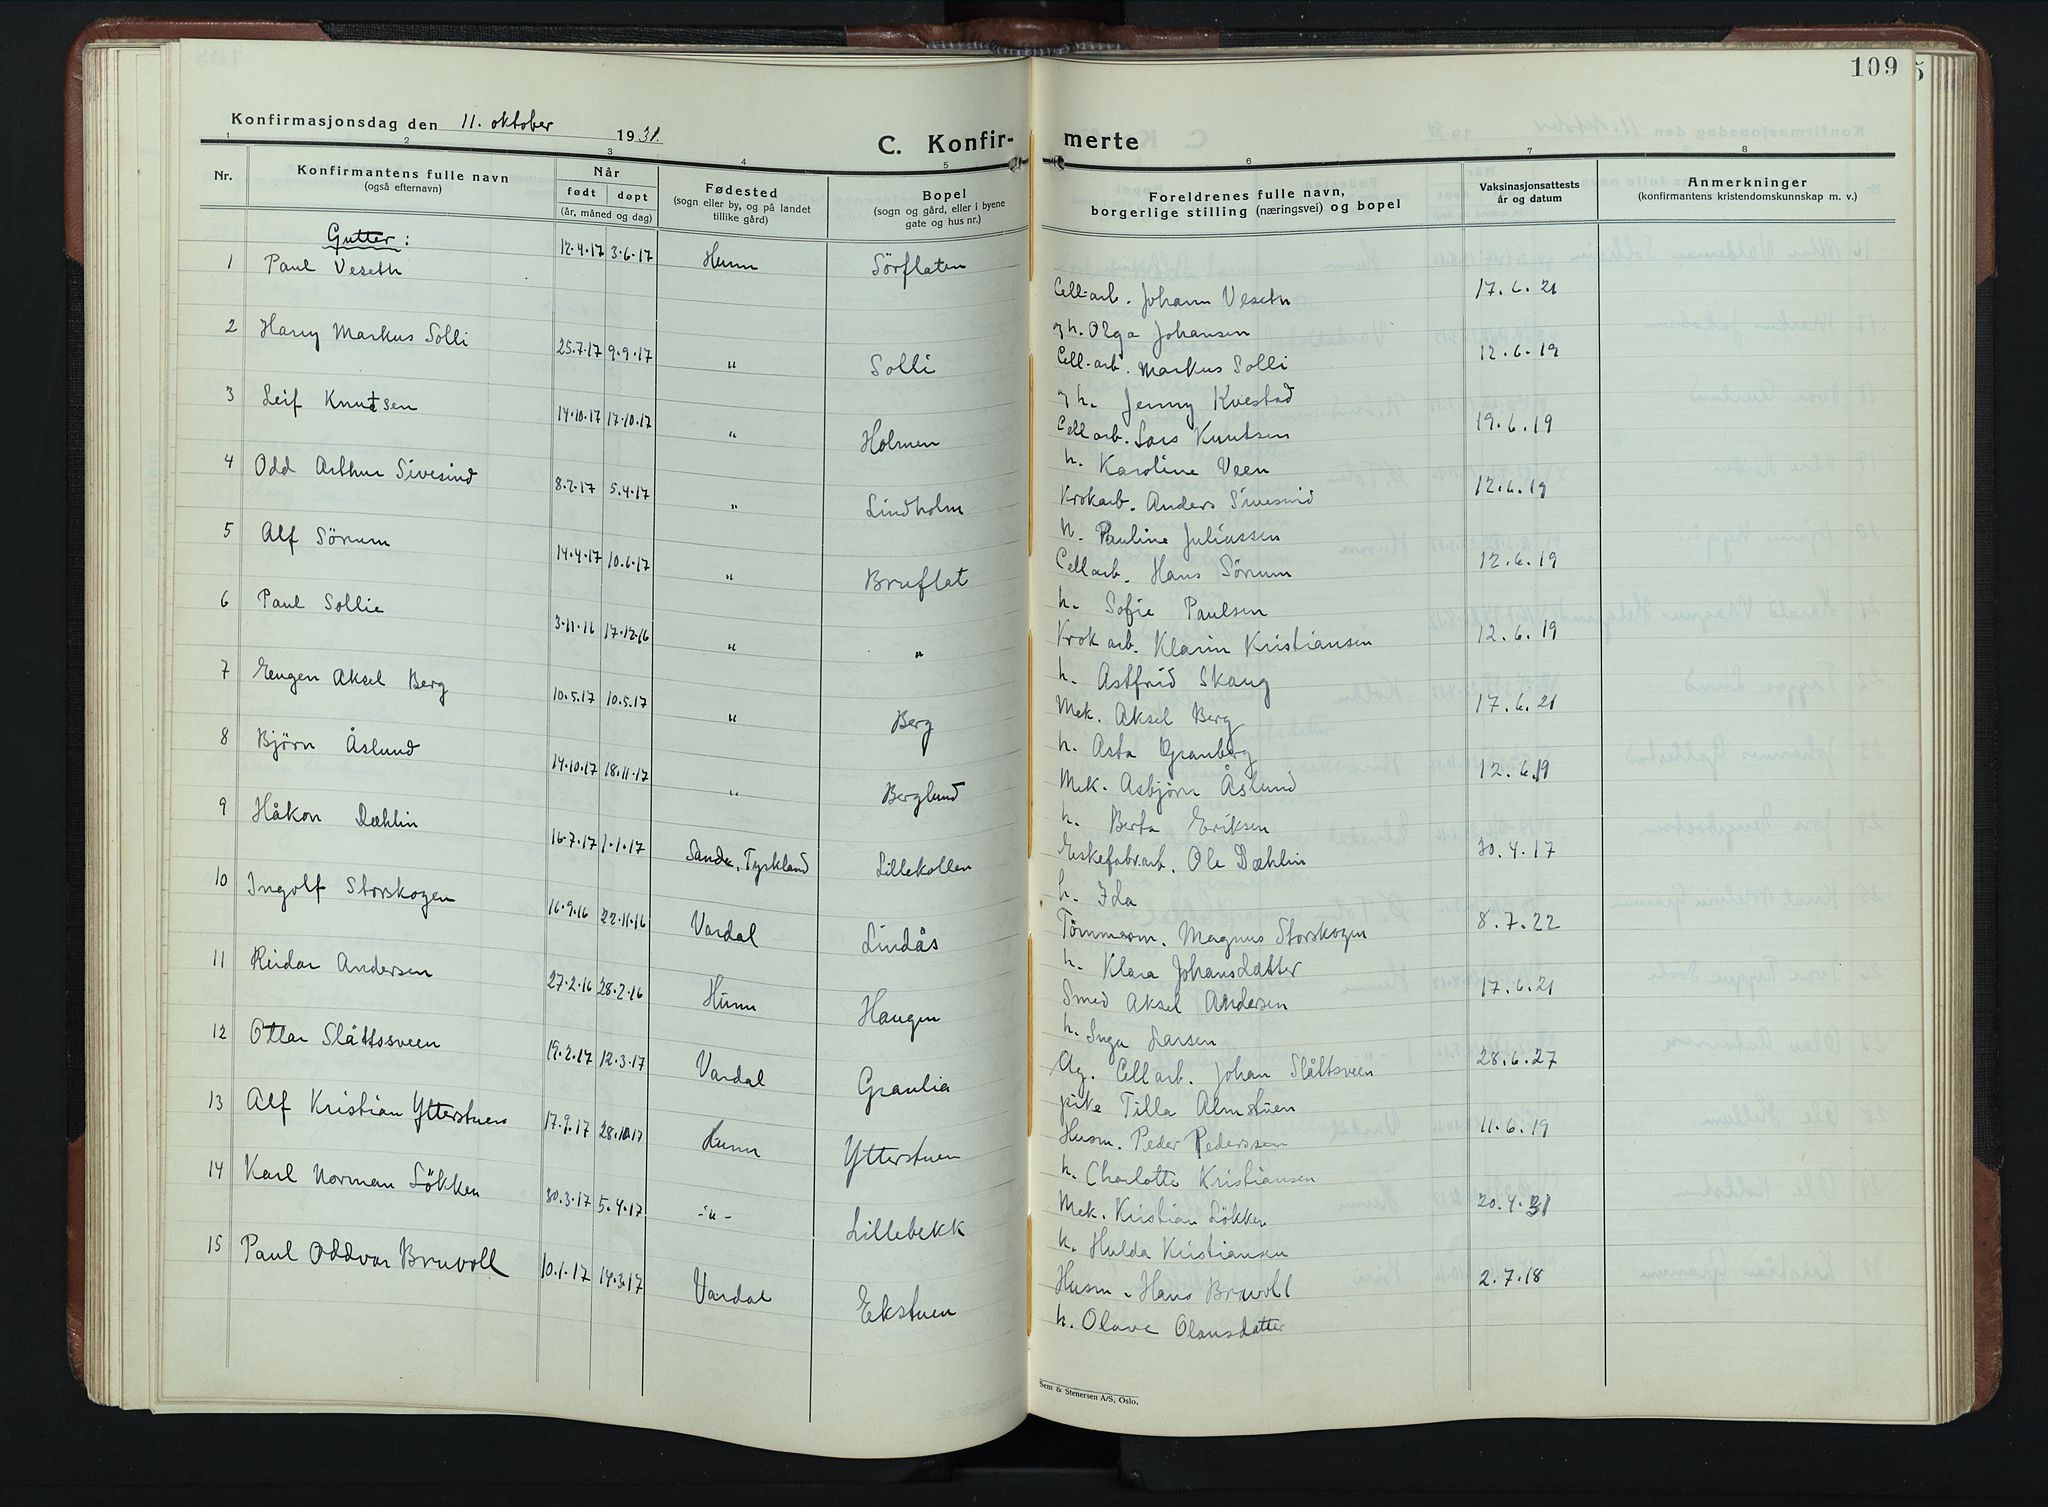 109
Konfirmasjonsdag den 11. oktober 1931.
C. Konfir-merte
1 2 3 4 5 6 7 8
Nr. Konfirmantens fulle navn (også efternavn) Når født døpt (år, måned og dag) Fødested (sogn eller by, og på landet tillike gård) Bopel (sogn og gård, eller i byene gate og hus nr.) Foreldrenes fulle navn, borgerlige stilling (næringsvei) og bopel Vaksinasjonsattests år og datum Anmerkninger (konfirmantens kristendomskunnskap m. v.)
Gutter:
1 Paul Veseth 12.4.17 3.6.17 Hunn Sörflaten Cell-arb. Johann Veseth 17.6.21
og h. Olga Johansen
2 Harry Markus Solli 25.7.17 9.9.17 " Solli Cell-arb. Markus Solli 12.6.19
og h. Jenny Kvestad
3 Leif Knutsen 14.10.17 17.10.17 " Holmen Cell arb. Lars Knutsen 19.6.19
h. Karoline Veen
4 Odd Arthur Sivesind 8.2.17 5.4.17 " Lindholm Krokarb. Anders Sivesind 12.6.19
h. Pauline Juliussen
5 Alf Sörum 14.4.17 10.6.17 " Bruflat Cellarb. Hans Sörum 12.6.19
h. Sofie Paulsen
6 Paul Sollie 3.11.16 17.12.16 " " Krok arb. Klarin Kristiansen 12.6.19
h. Astfrid Skaug
7 Eugen Aksel Berg 10.5.17 10.5.17 " Berg Mek. Aksel Berg 17.6.21
h. Asta Granberg
8 Bjørn Åslund 14.10.17 18.11.17 " Berglund Mek. Asbjørn Åslund 12.6.19
h. Berta Eriksen
9 Håkon Dæhlin 16.7.17 1.1.17 Sande, Tyskland Lillekollen Eskefabr.arb. Ole Dæhlin 30.4.17
h. Ida
10 Ingolf Storskogen 16.9.16 22.11.16 Vardal Lindås Tömmerm. Magnus Storskogen 8.7.22
h. Klara Johansdatter
11 Reidar Andersen 27.2.16 28.2.16 Hunn Haugen Smed Aksel Andersen 17.6.21
h. Inga Larsen
12 Ottar Slåttsveen 19.2.17 12.3.17 Vardal Granlia Ug. Cell arb. Johan Slåttsveen 28.6.27
pike Tilla Almstuen
13 Alf Kristian Ytterstuen 17.9.17 28.10.17 Hunn Ytterstuen Husm. Peder Pederssen 11.6.19
h. Charlotte Kristiansen
14 Karl Norman Lökken 30.3.17 5.4.17 -"- Lillebekk Mek. Kristian Lökken 20.4.31
h. Hulda Kristiansen
15 Paul Oddvar Bruvoll 10.1.17 14.3.17 Vardal Ekstuen Husm. Hans Bruvoll 2.7.18
h. Olave Olausdatter
Sem & Stenersen A/S, Oslo.